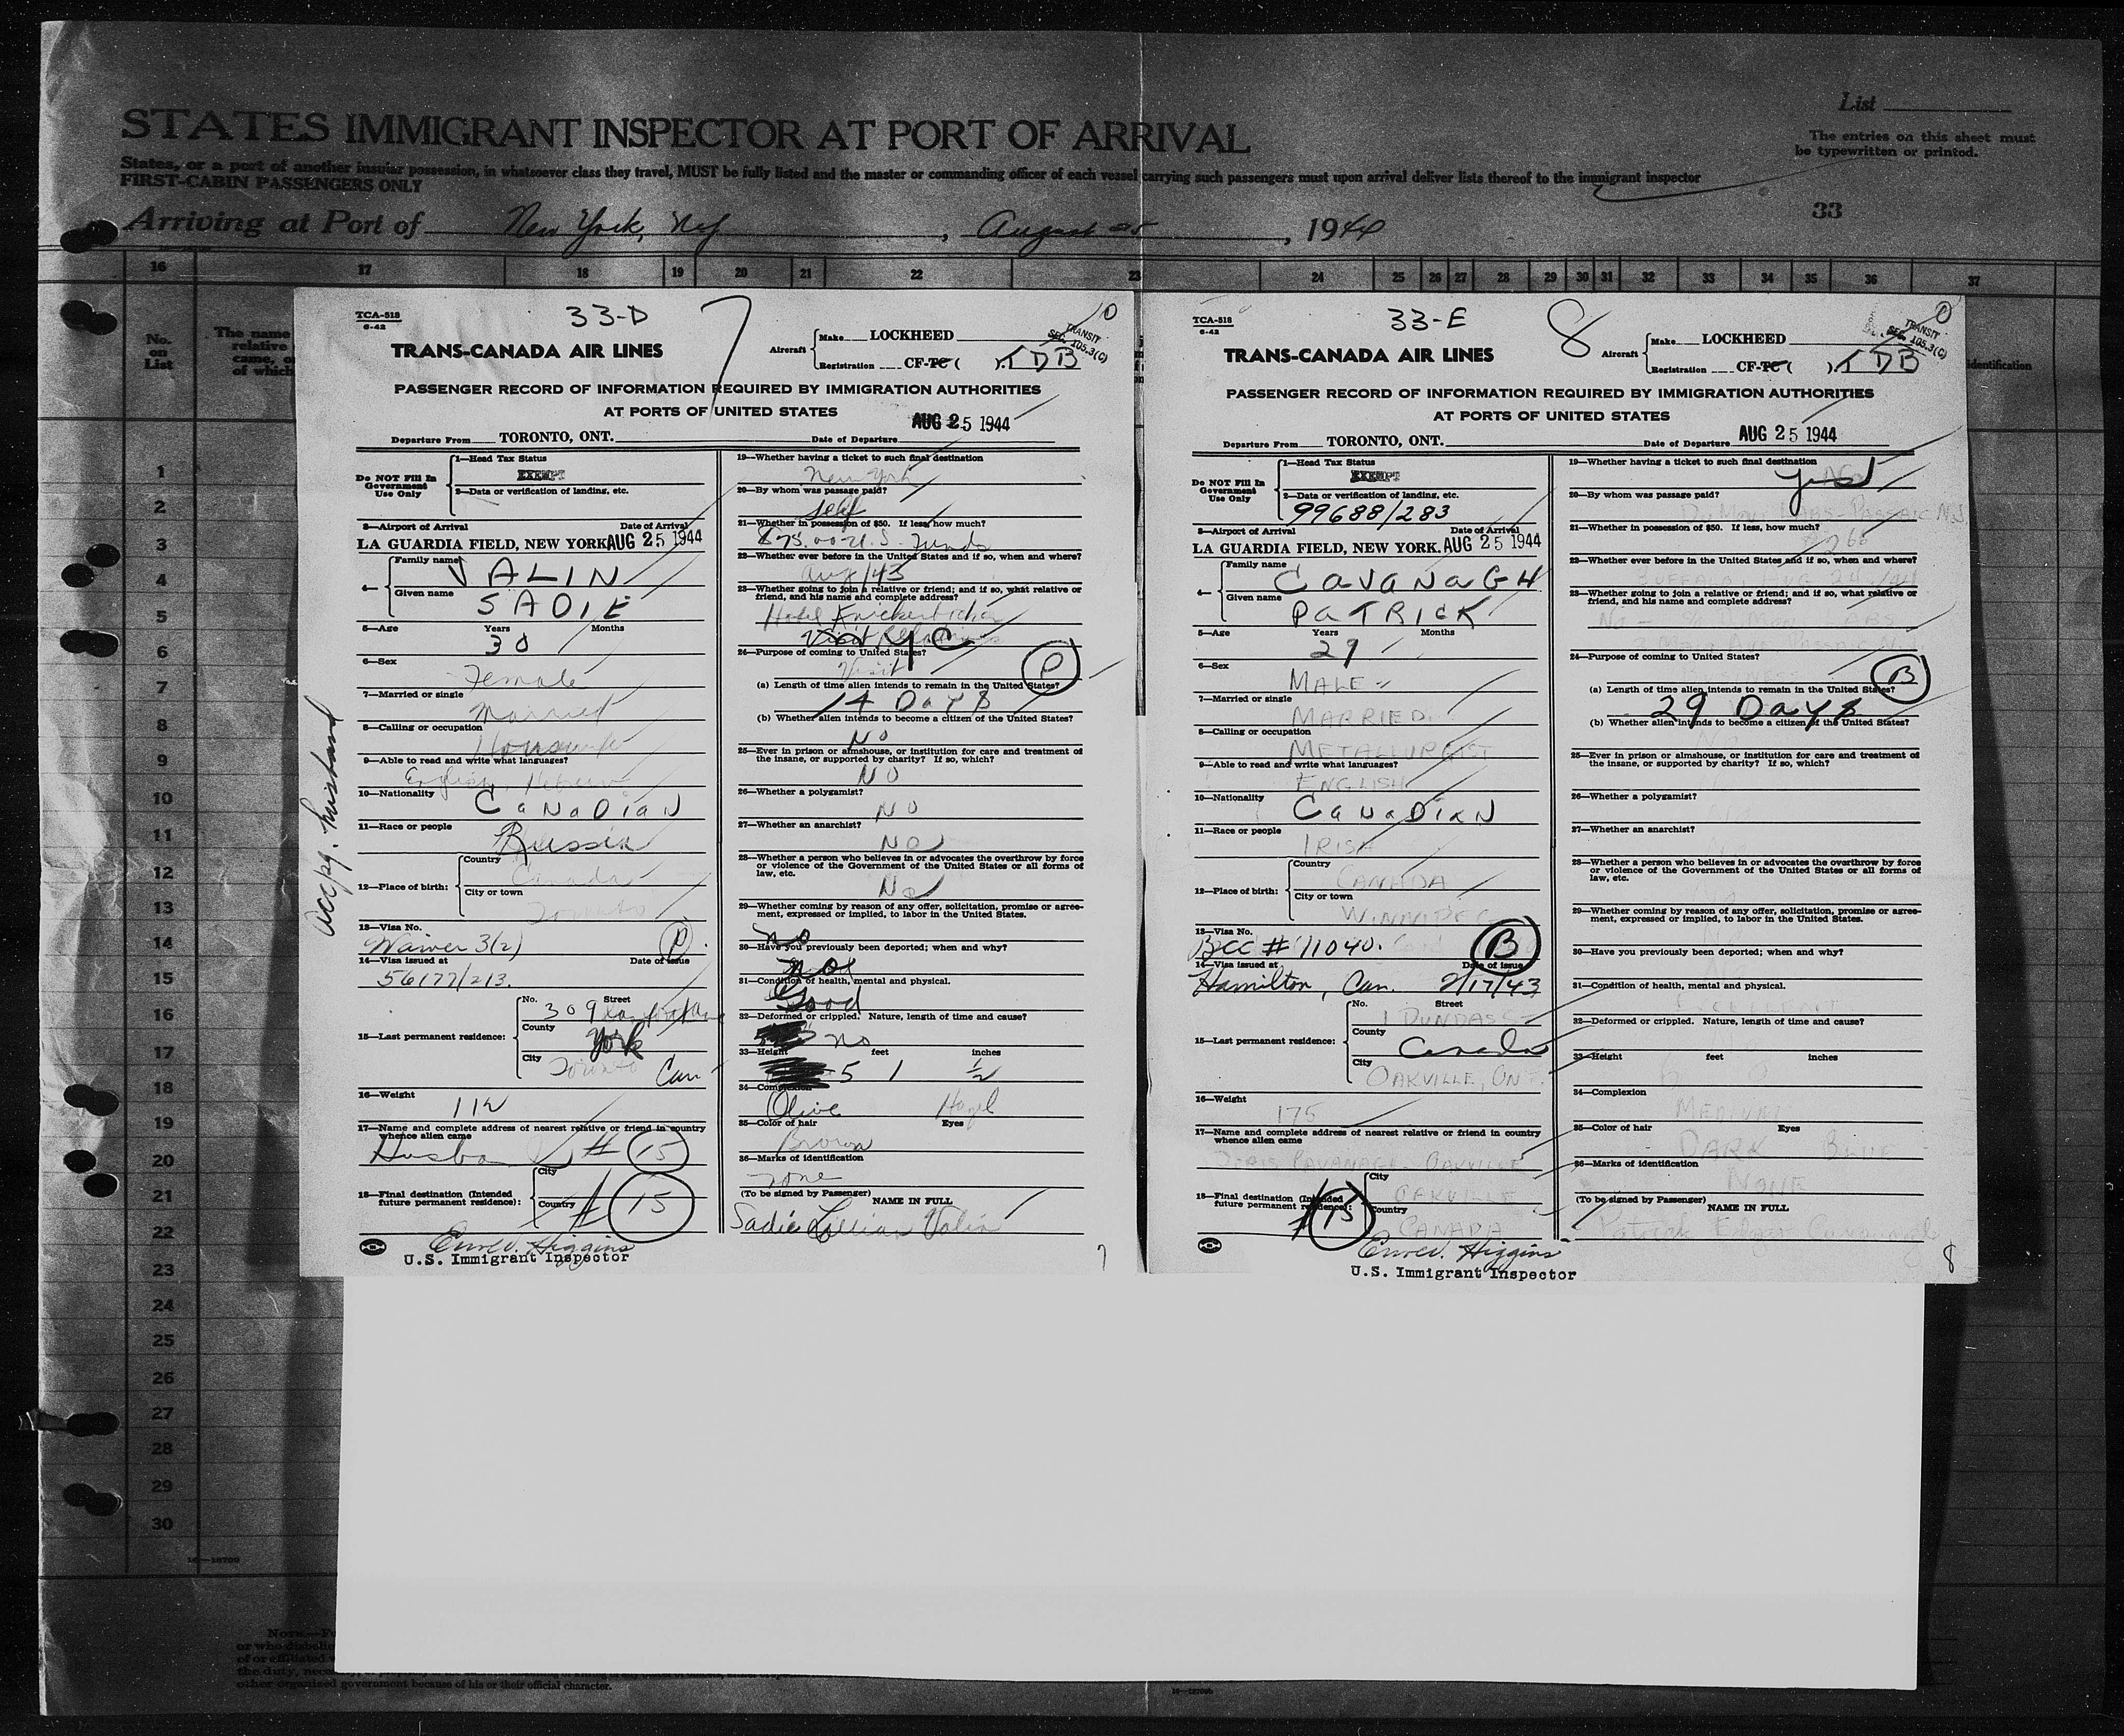 List
STATES IMMIGRANT INSPECTOR AT PORT OF ARRIVAL
The entries on this sheet must
be typewritten or printed.
States, or a port of another insular possession, in whatsoever class they travel, MUST be fully listed and the master or commanding officer of each vessel carrying such passengers must upon arrival deliver lists thereof to the immigrant inspector
FIRST-CABIN PASSENGERS ONLY
33
Arriving at Port of New York, NY, August 25, 1944
16 17 18 19 20 21 22 23 24 25 26 27 28 29 30 31 32 33 34 35 36 37
No.
on
List
The name
relative
came, o
of which
identification
1
2
3
4
5
6
7
8
9
10
11
12
13
14
15
16
17
18
19
20
21
22
23
24
25
26
27
28
29
30
Accpg. husband
TCA-518
6-42
33-D 7
TRANS-CANADA AIR LINES
Aircraft Make LOCKHEED
Registration CF-TC ( ). TDB
TRANSIT
SEC. 105.3(C)
PASSENGER RECORD OF INFORMATION REQUIRED BY IMMIGRATION AUTHORITIES
AT PORTS OF UNITED STATES
AUG 25 1944
Departure From TORONTO, ONT. Date of Departure
Do NOT Fill In
Government
Use Only
1—Head Tax Status
EXEMPT
2—Data or verification of landing, etc.
3—Airport of Arrival Date of Arrival
LA GUARDIA FIELD, NEW YORK AUG 25 1944
4— Family name VALIN
Given name SADIE
5—Age Years Months
30
6—Sex
Female
7—Married or single
Married
8—Calling or occupation
Housewife
9—Able to read and write what languages?
English, Hebrew
10—Nationality
CANADIAN
11—Race or people
Russia
12—Place of birth:
Country
Canada
City or town
Toronto
13—Visa No.
Waiver 3(2) P
14—Visa issued at Date of issue
56177/213.
15—Last permanent residence:
No. Street
309
County
York
City
Toronto Can
16—Weight
112
17—Name and complete address of nearest relative or friend in country
whence alien came
# 15
18—Final destination (Intended
future permanent residence):
City
Country
# 15
U.S. Immigrant Inspector
19—Whether having a ticket to such final destination
New York
20—By whom was passage paid?
self
21—Whether in possession of $50. If less, how much?
$75.00 U.S. Funds
22—Whether ever before in the United States and if so, when and where?
Aug/43
23—Whether going to join a relative or friend; and if so, what relative or
friend, and his name and complete address?
Hotel Knickerbocker
NYC
24—Purpose of coming to United States?
Visit P
(a) Length of time alien intends to remain in the United States?
14 Days
(b) Whether alien intends to become a citizen of the United States?
No
25—Ever in prison or almshouse, or institution for care and treatment of
the insane, or supported by charity? If so, which?
NO
26—Whether a polygamist?
NO
27—Whether an anarchist?
NO
28—Whether a person who believes in or advocates the overthrow by force
or violence of the Government of the United States or all forms of
law, etc.
No
29—Whether coming by reason of any offer, solicitation, promise or agree-
ment, expressed or implied, to labor in the United States.
no
30—Have you previously been deported; when and why?
no
31—Condition of health, mental and physical.
Good
32—Deformed or crippled. Nature, length of time and cause?
no
33—Height feet inches
5 1 ½
34—Complexion
Olive Hazel
35—Color of hair Eyes
Brown
36—Marks of identification
none
(To be signed by Passenger) NAME IN FULL
Sadie Lillian Valin
7
TCA-518
6-42
33-E 8
TRANS-CANADA AIR LINES
Aircraft Make LOCKHEED
Registration CF-TC ( ). TDB
TRANSIT
SEC. 105.3(C)
PASSENGER RECORD OF INFORMATION REQUIRED BY IMMIGRATION AUTHORITIES
AT PORTS OF UNITED STATES
Departure From TORONTO, ONT. Date of Departure AUG 25 1944
Do NOT Fill In
Government
Use Only
1—Head Tax Status
EXEMPT
2—Data or verification of landing, etc.
99688/283
3—Airport of Arrival Date of Arrival
LA GUARDIA FIELD, NEW YORK. AUG 25 1944
4— Family name CAVANAGH
Given name PATRICK
5—Age Years Months
29
6—Sex
MALE
7—Married or single
MARRIED.
8—Calling or occupation
METALLURGIST
9—Able to read and write what languages?
ENGLISH
10—Nationality
CANADIAN
11—Race or people
IRISH
12—Place of birth:
Country
CANADA
City or town
WINNIPEG
13—Visa No.
BCC # 11040. B
14—Visa issued at Date of issue
Hamilton, Can. 2/17/43
15—Last permanent residence:
No. Street
1 DUNDAS ST
County
Canada
City
OAKVILLE, ONT.
16—Weight
175
17—Name and complete address of nearest relative or friend in country
whence alien came
CAVANAGH - OAKVILLE
18—Final destination (Intended
future permanent residence):
City
OAKVILLE
Country
CANADA
# 15
U.S. Immigrant Inspector
19—Whether having a ticket to such final destination
yes
20—By whom was passage paid?
LABS - PASSAIC N.J.
21—Whether in possession of $50. If less, how much?
22—Whether ever before in the United States and if so, when and where?
BUFFALO, AUG
23—Whether going to join a relative or friend; and if so, what relative or
friend, and his name and complete address?
24—Purpose of coming to United States?
B
(a) Length of time alien intends to remain in the United States?
29 Days
(b) Whether alien intends to become a citizen of the United States?
25—Ever in prison or almshouse, or institution for care and treatment of
the insane, or supported by charity? If so, which?
26—Whether a polygamist?
27—Whether an anarchist?
28—Whether a person who believes in or advocates the overthrow by force
or violence of the Government of the United States or all forms of
law, etc.
29—Whether coming by reason of any offer, solicitation, promise or agree-
ment, expressed or implied, to labor in the United States.
30—Have you previously been deported; when and why?
31—Condition of health, mental and physical.
EXCELLENT
32—Deformed or crippled. Nature, length of time and cause?
33—Height feet inches
34—Complexion
MEDIUM
35—Color of hair Eyes
DARK BLUE
36—Marks of identification
NONE
(To be signed by Passenger) NAME IN FULL
Patrick
8
or who
of or affiliated
the duty,
other organized government because of his or their official character.